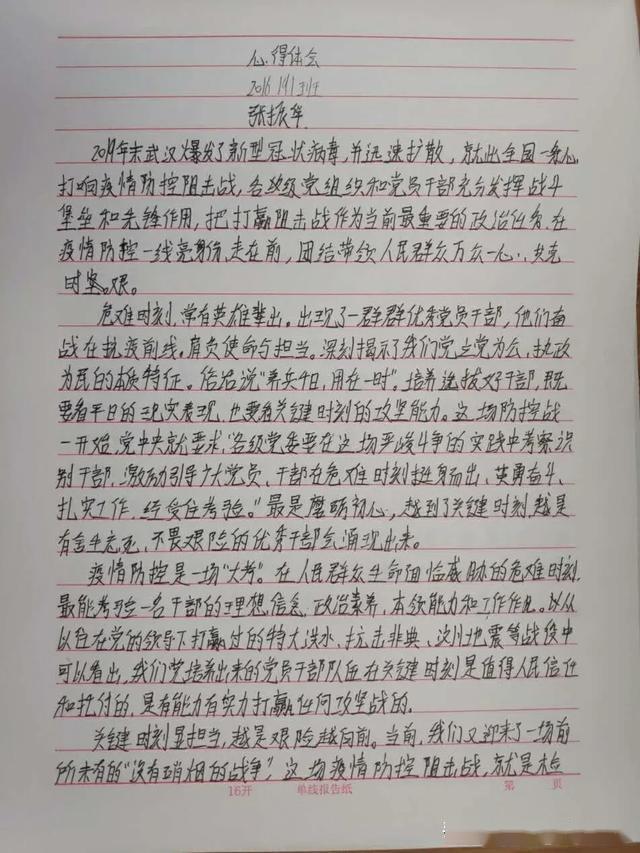 心得体会
2016 1911班
张振华
2019年末武汉爆发了新型冠状病毒,并迅速扩散,就此全国一条心
打响疫情防控阻击战,各地级党组织和党员干部充分发挥战斗
堡垒和先锋作用,把打赢阻击战作为当前最重要的政治任务,在
疫情防控一线亮身份,走在前,团结带领人民群众万众一心,共克
时艰。
危难时刻,常有英雄辈出。出现了一群群优秀党员干部,他们奋
战在抗疫前线,肩负使命与担当。深刻揭示了我们党立党为公,执政
为民的本质特征。俗话说"养兵千日,用在一时",培养选拔好干部,既
要看平日的现实表现,也要看关键时刻的攻坚能力。这场防控战
一开始,党中央就要求"各级党委要在这场严峻斗争的实践中考察识
别干部,激励引导广大党员、干部在危难时刻挺身而出、英勇奋斗、
扎实工作,经受住考验。"最是磨砺初心,越到了关键时刻,越是
有舍生忘死、不畏艰险的优秀干部会涌现出来。
疫情防控是一场"大考"。在人民群众生命面临威胁的危难时刻,
最能考验一名干部的理想信念,政治素养,本领能力和工作作风。以从
以往在党的领导下打赢过的特大洪水、抗击非典、汶川地震等战役中
可以看出,我们党培养出来的党员干部队伍在关键时刻是值得人民信任
和托付的,是有能力有实力打赢任何攻坚战的.
关键时刻显担当,越是艰险越向前。当前,我们又迎来了一场前
所未有的"没有硝烟的战争",这场疫情防控阻击战,就是检
16开 单线报告纸 第 页